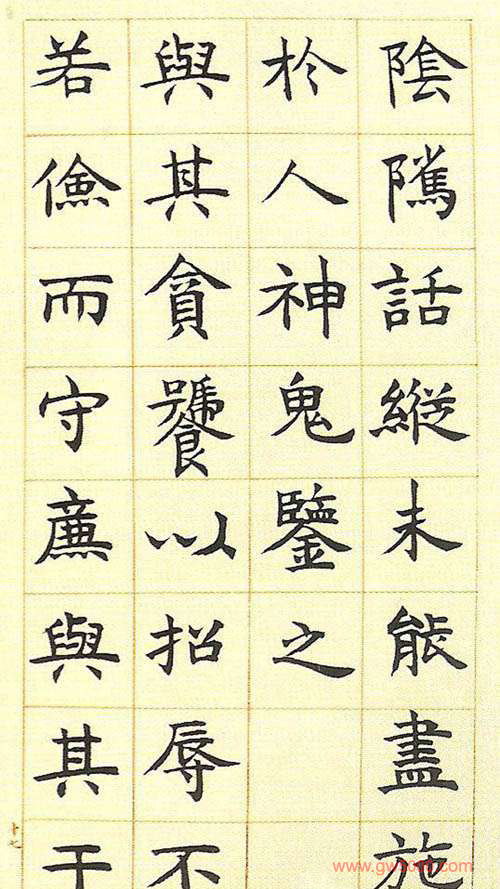 陰隲話縱未能盡施
於人神鬼鑒之
與其貪饕以招辱不
若儉而守廉與其干
十七